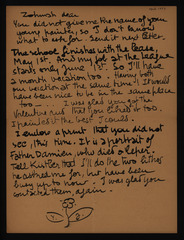 Zohmah dear
You did not give me the name of your
young painter, so I don't know
what to ask for. Send it next letter.
The school finishes with the lease,
May 1st. And my job at the
starts only June 1st. So I'll have
a month vacation too. Having both
our vacation at the same time! It would
have been nice to be in the same place
too —. I was glad you got the
Valentine and that you liked it too.
I painted it the best I could.
I enclose a print that you did not
see, this time. It is a portrait of
Father Damien, who died a leper.
Tell Kistler that I'll do the two
he asked me for, but have been
busy up to now. I was glad you
again.